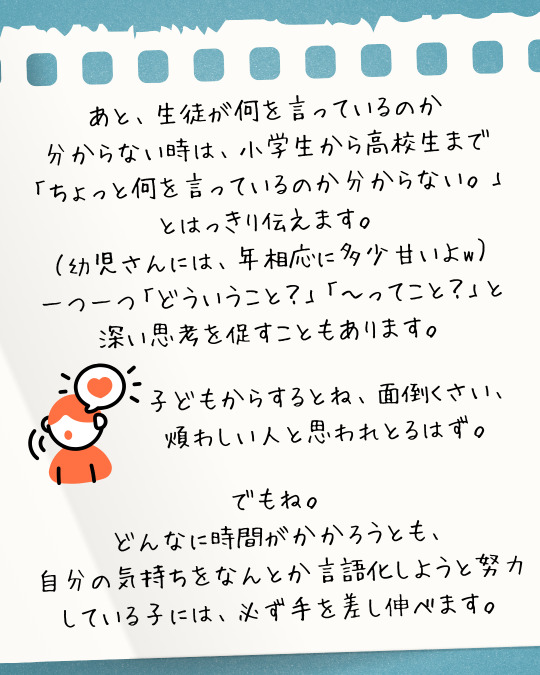 あと、生徒が何を言っているのか
分からない時は、小学生から高校生まで
「ちょっと何を言っているのか分からない。」
とはっきり伝えます。
(幼児さんには、年相応に多少甘いよw)
一つ一つ「どういうこと?」「〜ってこと?」と
深い思考を促すこともあります。
子どもからするとね、面倒くさい、
煩わしい人と思われとるはず。
でもね。
どんなに時間がかかろうとも、
自分の気持ちをなんとか言語化しようと努力
している子には、必ず手を差し伸べます。